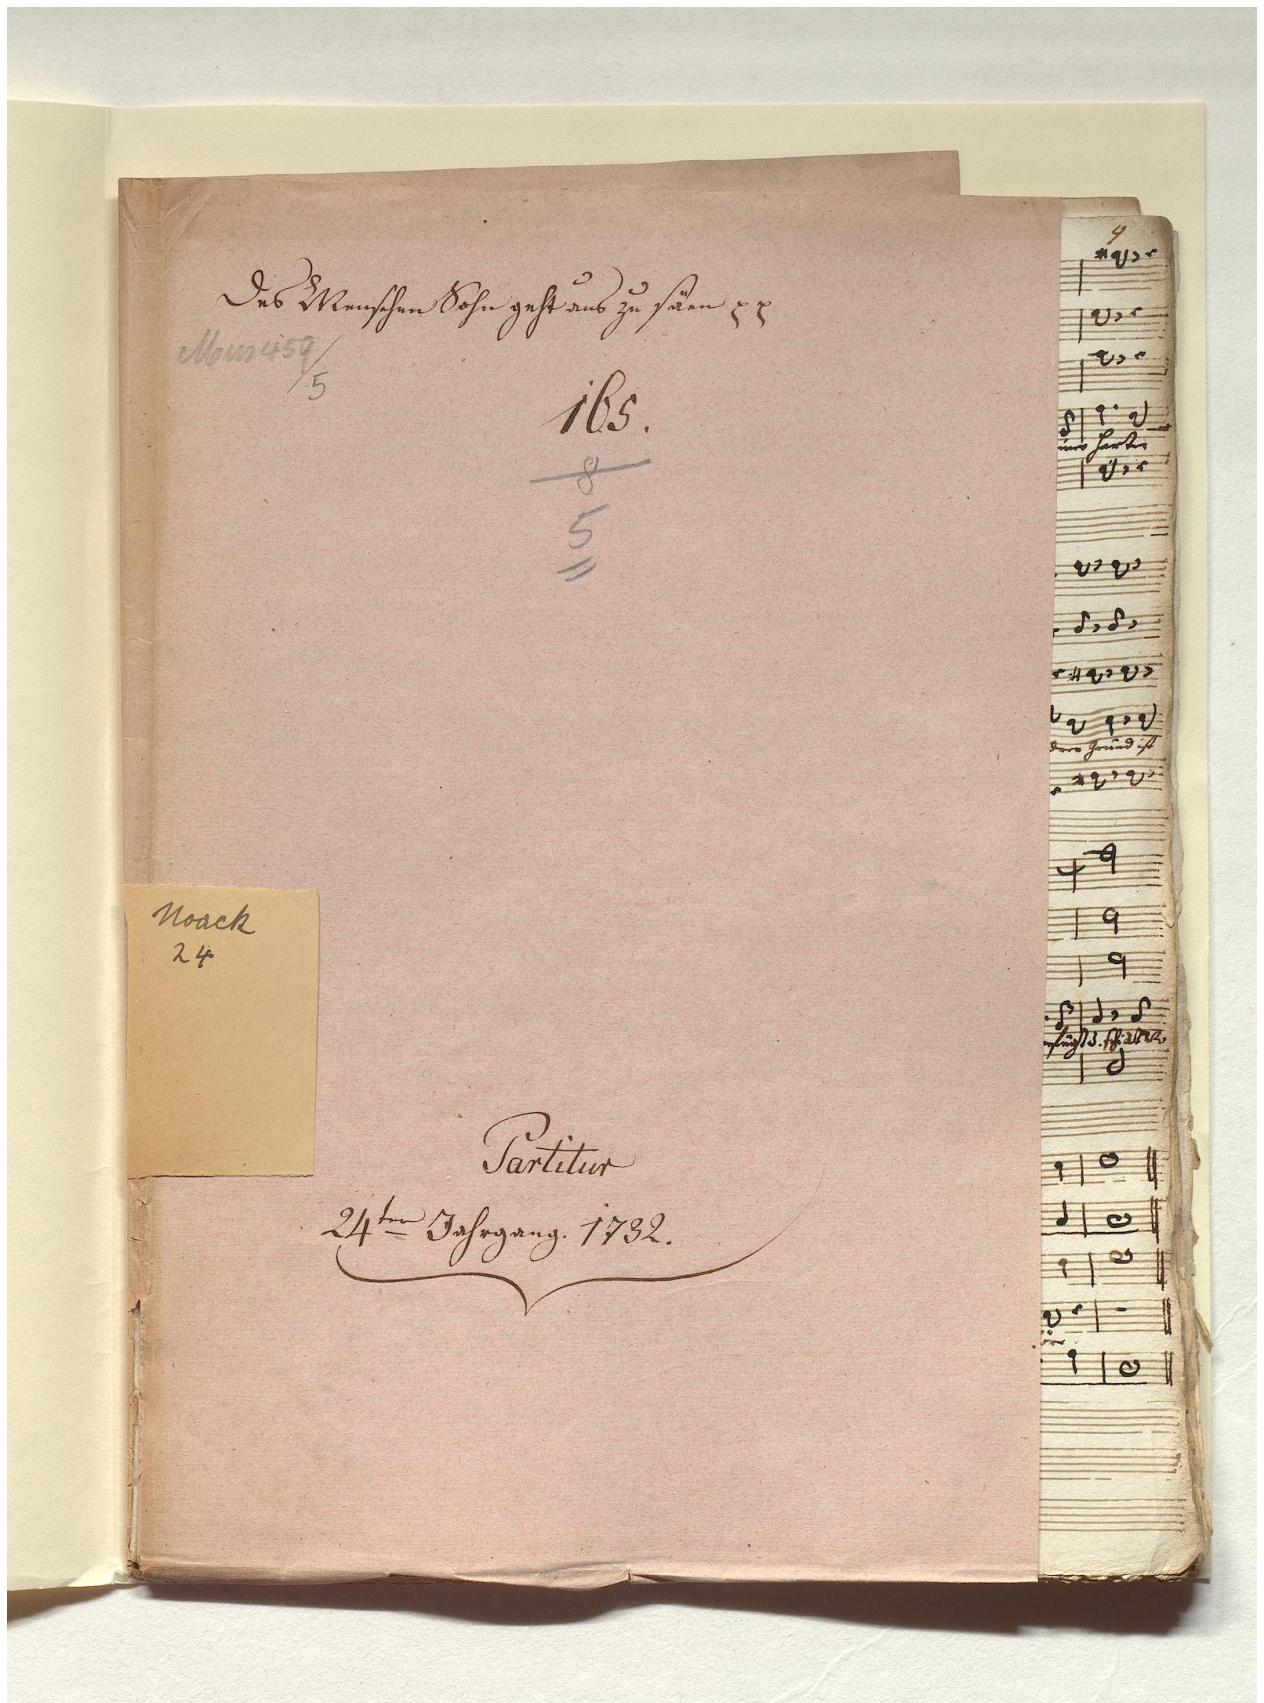 Des Menschen Sohn geht aus zu säen
Mus 459/5
165.
8
5
Noack
24
Partitur
24ten Jahrgang. 1732.
9
harten
Grund ist